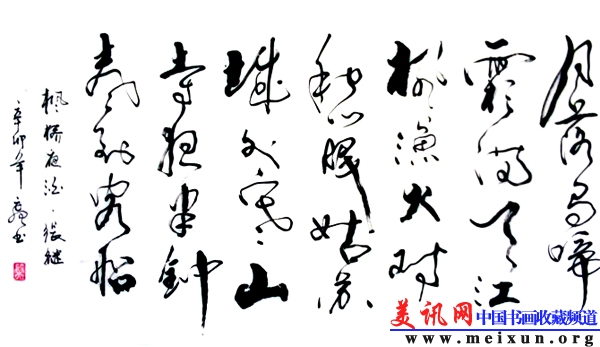 月落乌啼
霜满天江
枫渔火对
愁眠姑苏
城外寒山
寺夜半钟
声到客船
枫桥夜泊·张继
辛卯年 书
美讯网 中国书画收藏频道
www.meixun.org